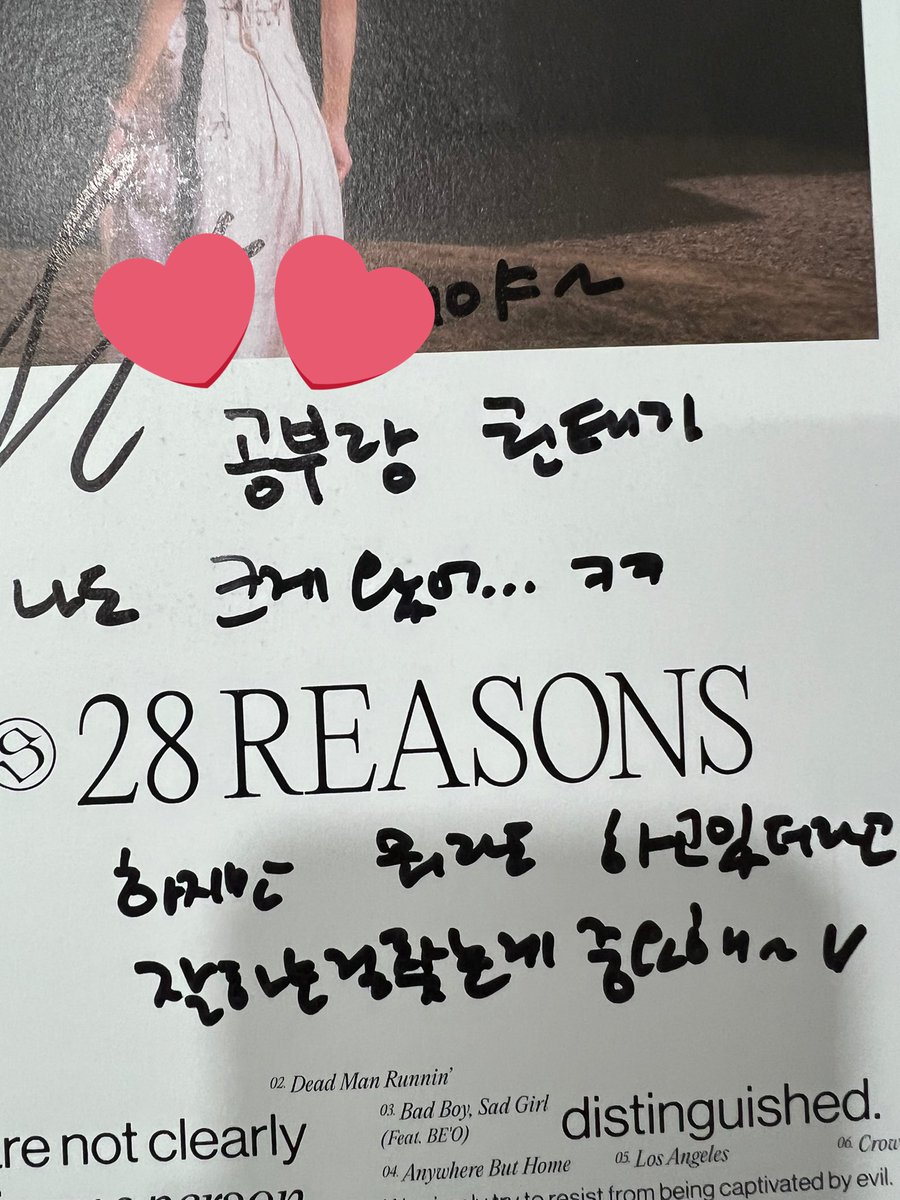 야~
공부랑 권태기
나도 크게 ... ㅋㅋ
S 28 REASONS
하지만 뭐라도 하고있더라고
잘하는걸 찾는게 중요해~ V
02. Dead Man Runnin'
re not clearly
03. Bad Boy, Sad Girl
(Feat. BE'O)
distinguished.
04. Anywhere But Home
05. Los Angeles
06. Crow
person
try to resist from being captivated by evil.